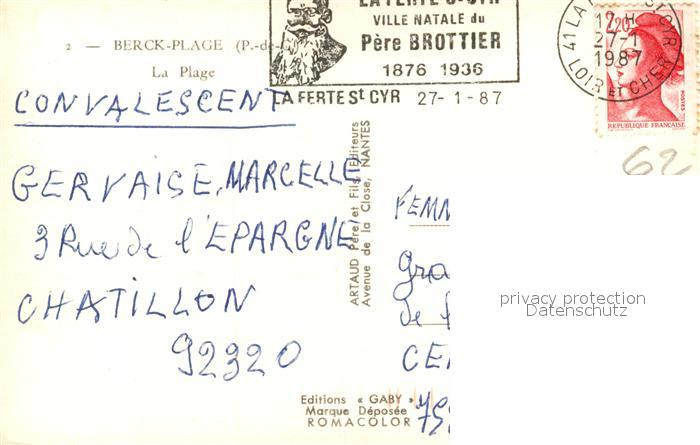 LA FERTE St CYR
VILLE NATALE du
Père BROTTIER
1876 1936
LA FERTE St CYR 27-1-87
41 LA ST CYR
12 H
27-1
1987
LOIR ET CHER
2,20
POSTES
REPUBLIQUE FRANÇAISE
62
2 — BERCK-PLAGE (P-de-
La Plage
CONVALESCENT
GERVAISE, MARCELLE
3 Rue de l'EPARGNE
CHATILLON
92320
ARTAUD Père et Fils, Editeurs
Avenue de la Close, NANTES
FEMM
gra
de
CE
75
privacy protection
Datenschutz
Editions « GABY »
Marque Déposée
ROMACOLOR